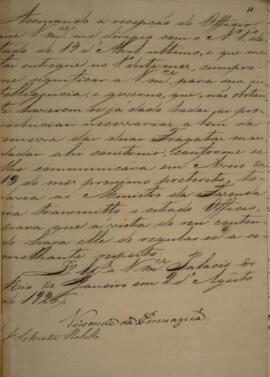 Accusando a recepção do Officio
que V. M.ce me dirigio com o N.º
tado de 19 d' Abril ultimo, e que me
foi entregue no 1.º mez, cumpre
me significar a V. M.ce para sua in
telligencia, e governo, que, não obstan
te haverem se ja dado todas as pro
videncias necessarias a bem da
remessa das duas Fragatas man
dadas ahi construir, conforme se
lhe communicára em Aviso de
19 do mez proximo preterito,
ao Ministro da Fazenda
transmitto o citado Officio,
para que á vista do seu conteu
do haja elle de regular-se a se
melhante respeito.
D.s G.e a V. M.ce Palacio do
Rio de Janeiro em 2 d' Agosto
de 1826.
Visconde de Paranaguá